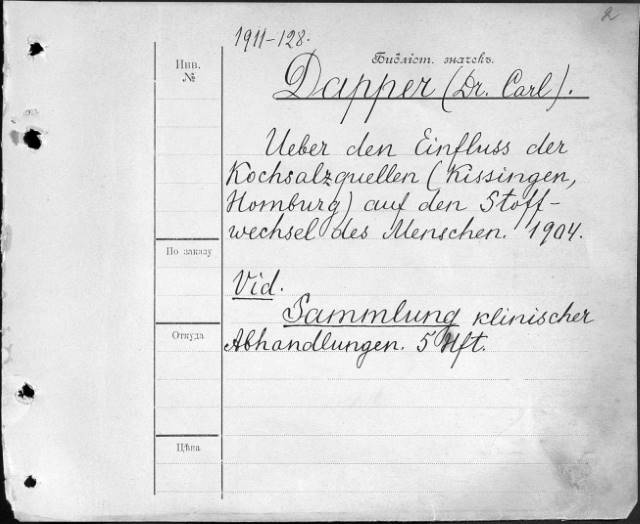 2
1911-128.
Инв.
№
Библіот. значекъ.
Dapper (Dr. Carl).
Ueber den Einfluss der
Kochsalzquellen (Kissingen,
Homburg) auf den Stoff-
wechsel des Menschen. 1904.
По заказу
Vid.
Sammlung klinischer
Откуда
Abhandlungen. 5 Hft.
Цѣна